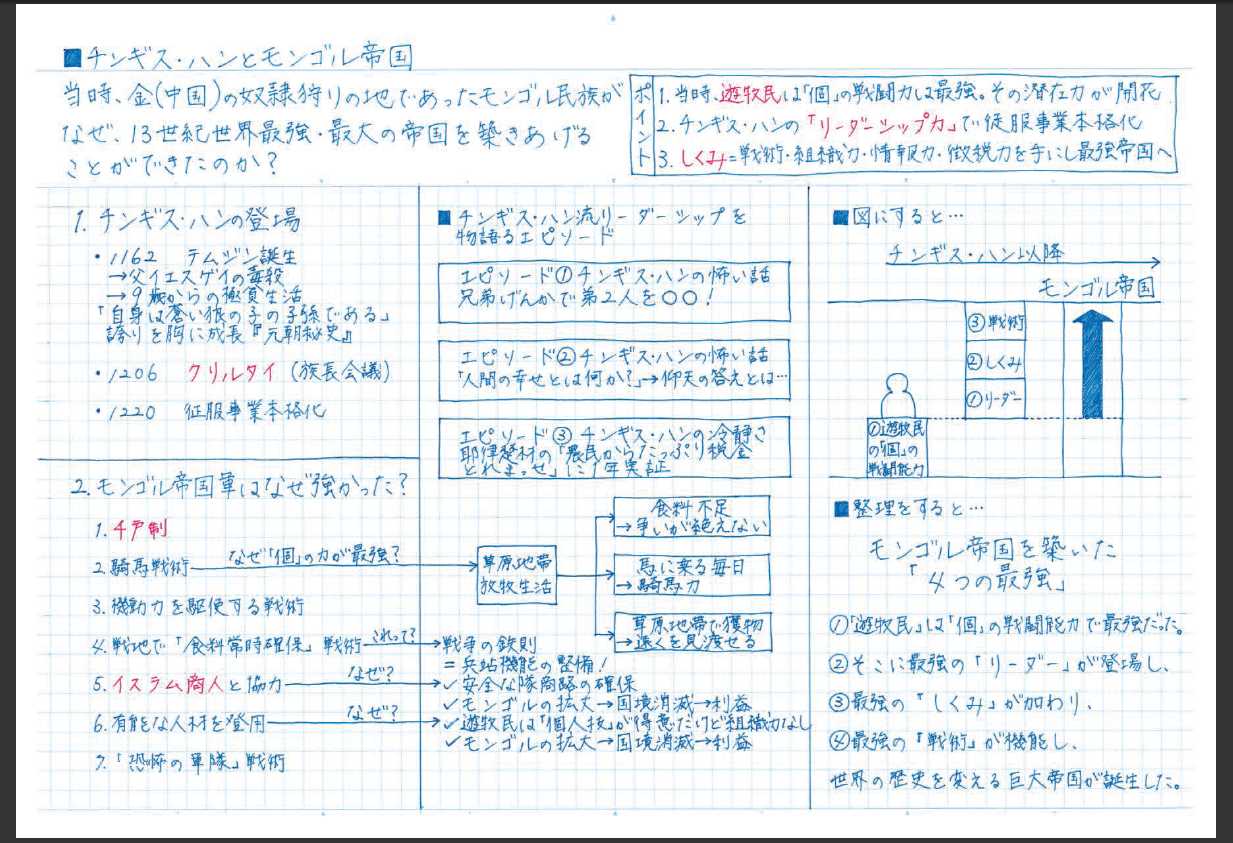 ■チンギス・ハンとモンゴル帝国
当時、金(中国)の奴隷狩りの地であったモンゴル民族が
なぜ、13世紀世界最強・最大の帝国を築きあげる
ことができたのか?
ポイント
1.当時、遊牧民は「個」の戦闘力は最強。その潜在力が開花
2.チンギス・ハンの「リーダーシップ力」で征服事業本格化
3.しくみ=戦術・組織力・情報力・徴税力を手にし最強帝国へ
1.チンギス・ハンの登場
・1162 テムジン誕生
→父イエスゲイの毒殺
→9歳からの極貧生活
「自身は蒼い狼の子の子孫である」
誇りを胸に成長『元朝秘史』
・1206 クリルタイ(族長会議)
・1220 征服事業本格化
2.モンゴル帝国軍はなぜ強かった?
1.千戸制
2.騎馬戦術
なぜ「個」の力が最強?
3.機動力を駆使する戦術
4.戦地で「食料常時確保」戦術
これって?
5.イスラム商人と協力
なぜ?
6.有能な人材を登用
なぜ?
7.「恐怖の軍隊」戦術
■チンギス・ハン流リーダーシップを
物語るエピソード
エピソード①チンギス・ハンの怖い話
兄弟げんかで第2人を〇〇!
エピソード②チンギス・ハンの怖い話
「人間の幸せとは何か?」→仰天の答えとは…
エピソード③チンギス・ハンの冷静さ
耶律楚材の「農民からたっぷり税金
とれまっせ」に1年実証
草原地帯
放牧生活
食料不足
→争いが絶えない
馬に乗る毎日
→騎馬力
草原地帯で獲物
→遠くを見渡せる
戦争の鉄則
=兵站機能の整備!
✓安全な隊商路の確保
✓モンゴルの拡大→国境消滅→利益
✓遊牧民は「個人技」が得意だけど組織力なし
✓モンゴルの拡大→国境消滅→利益
■図にすると…
チンギス・ハン以降
モンゴル帝国
③戦術
②しくみ
①リーダー
①遊牧民
の「個」の
戦闘能力
■整理をすると…
モンゴル帝国を築いた
「4つの最強」
①「遊牧民」は「個」の戦闘能力で最強だった。
②そこに最強の「リーダー」が登場し、
③最強の「しくみ」が加わり、
④最強の「戦術」が機能し、
世界の歴史を変える巨大帝国が誕生した。